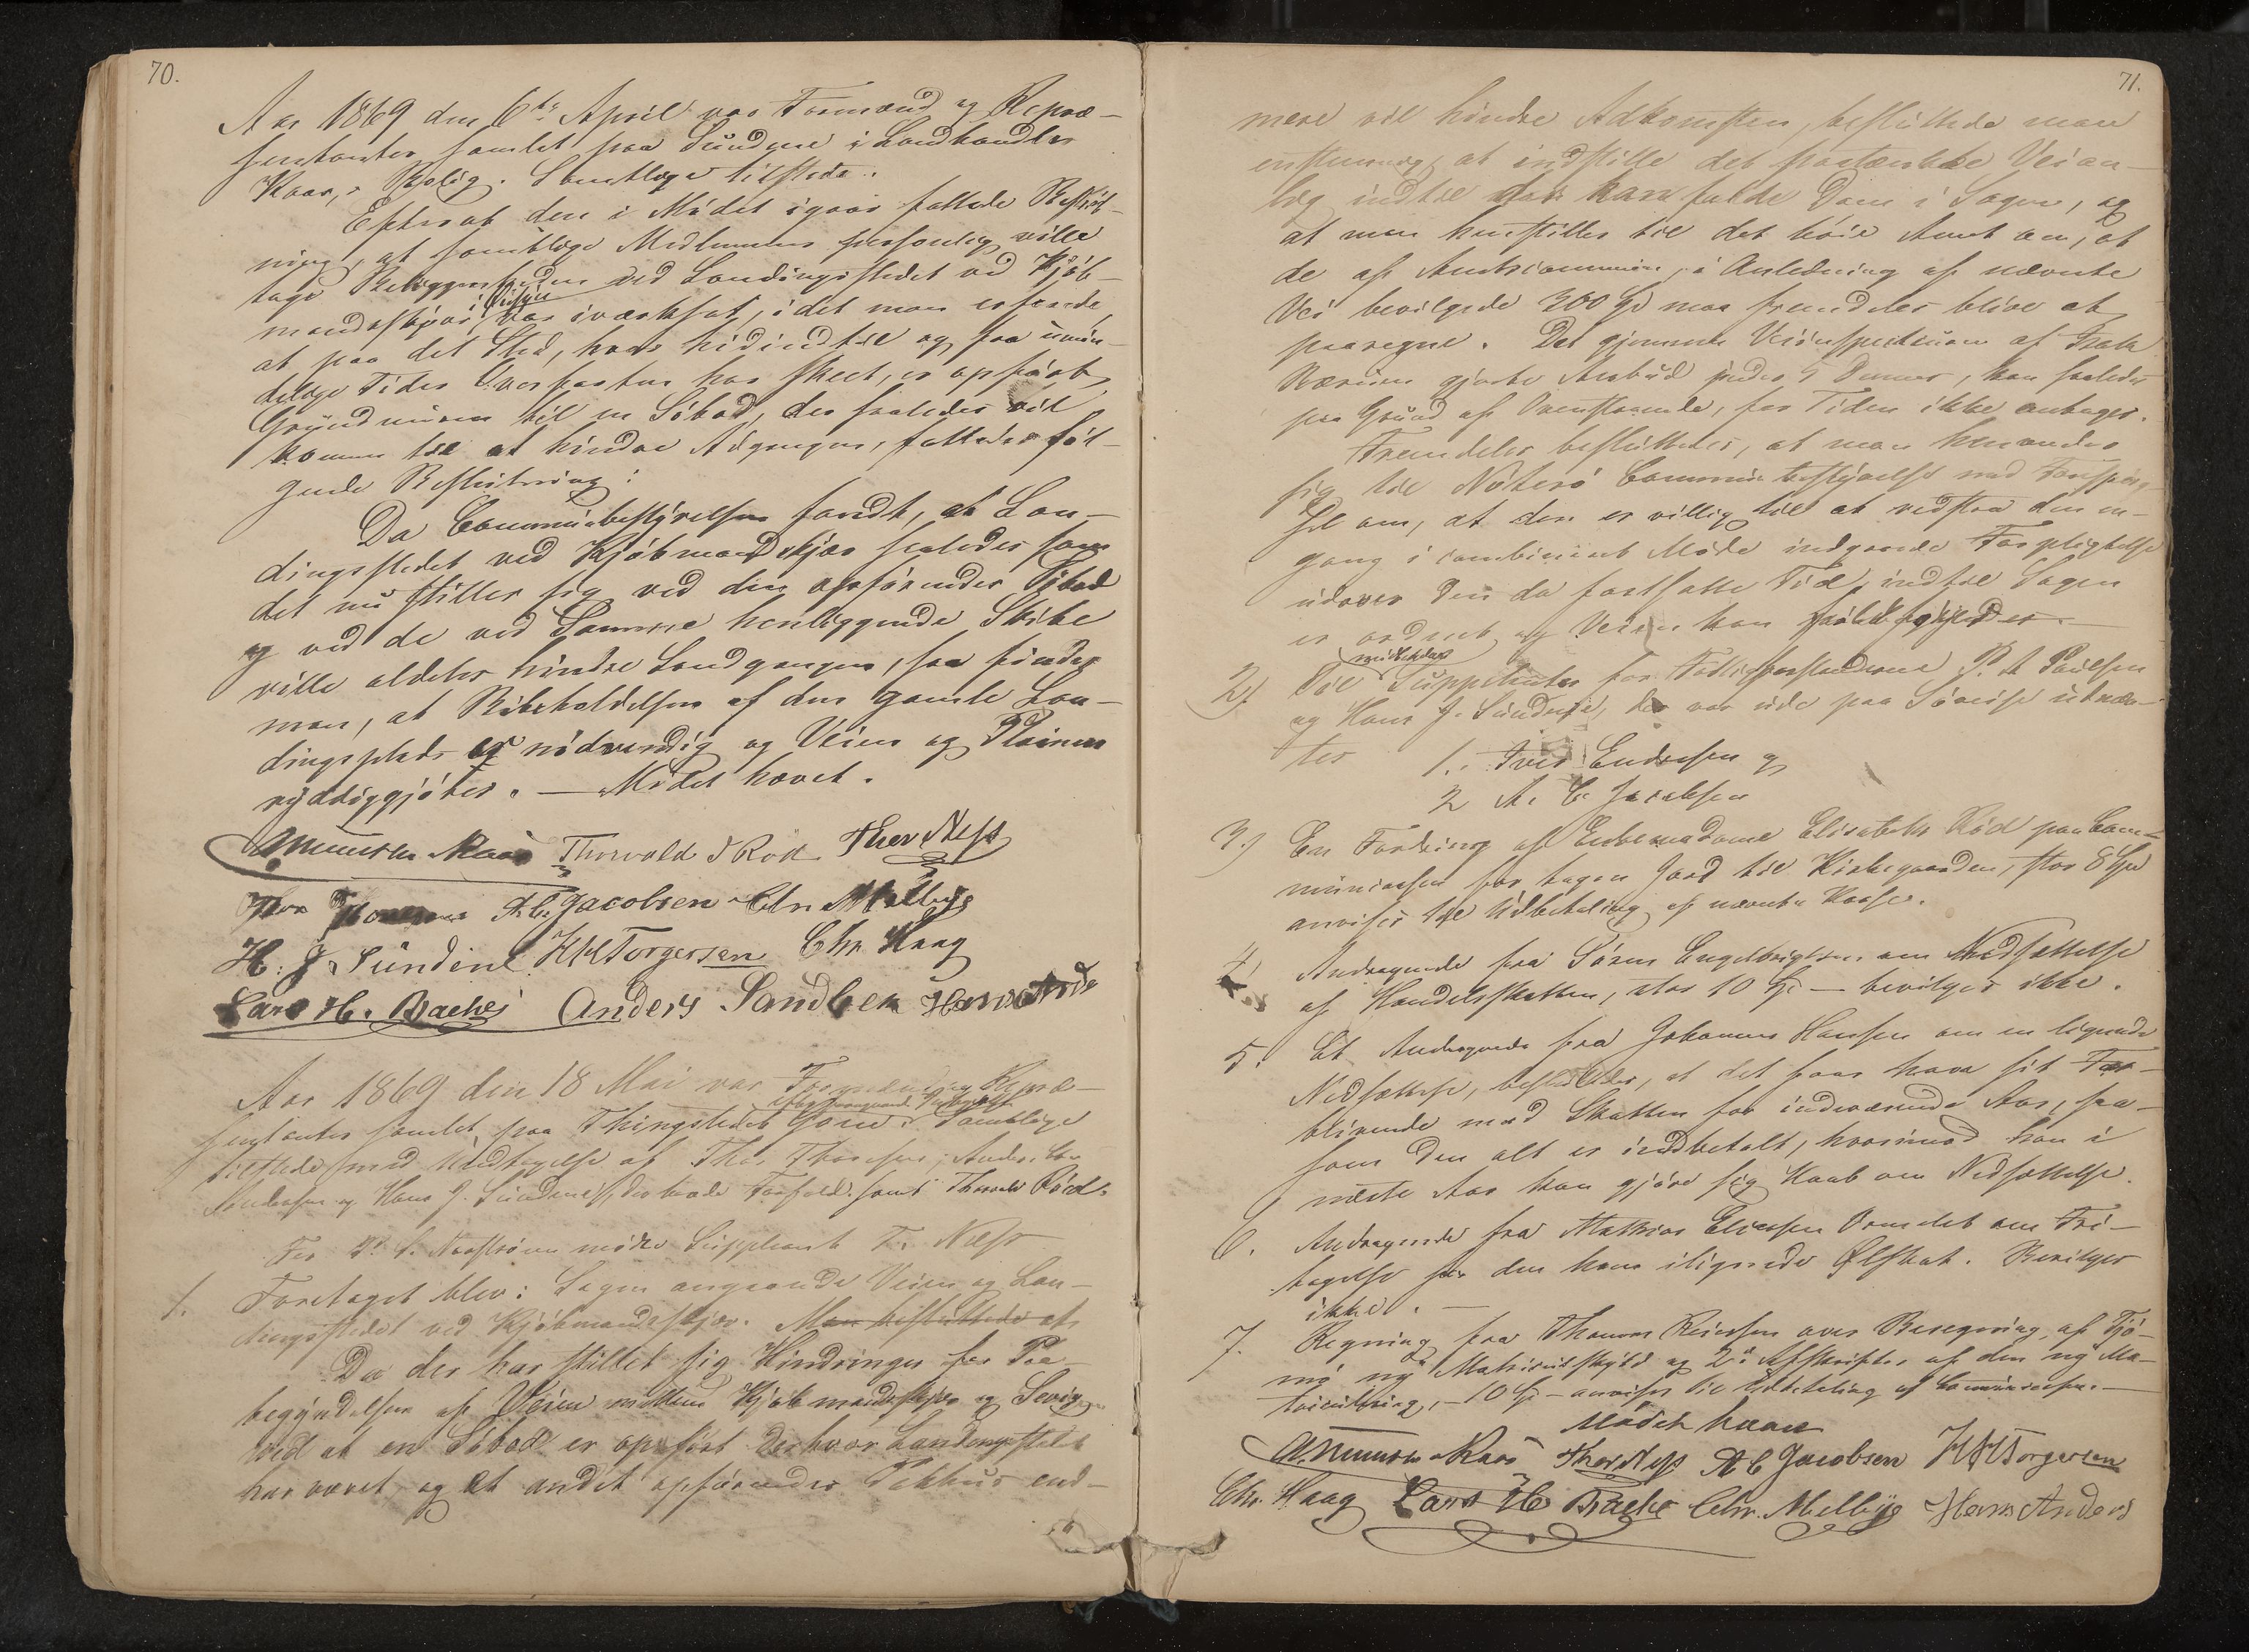 70.
Aar 1869 den 6te April var Formænd og Repræ-
sentanter samlet paa Sundene i Landhandler
Kaas,s Bolig. Samtlige tilstede.
Efterat den i Mødet igaar fattede Beslut-
ning, at samtlige Medlemmer personlig ville
tage Beliggenheden ved Landingsstedet ved Kjøb-
mandsskjær i Øiesyn var iværksat, idet man erfarede,
at paa det Sted, hvor hidindtil og fra umin-
delige Tider Overfarten har skeet, er opført
Grundmuren til en Søbod, der saaledes vil
komme til at hindre Adgangen, fattedes føl-
gende Beslutning:
Da Communebestyrelsen fandt, at Lan-
dingsstedet ved Kjøbmandsskjær saaledes som
det nu stiller sig ved den opførendes Søbod
og ved de ved Samme henliggende Skibe
ville aldeles hindre Landgangen, saa finder
man, at Bibeholdelsen af den gamle Lan-
dingsplads er nødvendig og Veien og Pladsen
ryddiggjøres. — Mødet hævet.
Amunsen Kaas Thorvald J Röd Thor Næss
Thor Thoresen A. C. Jacobsen Chr. Melbye
H. J. Sundene H H Torgersen Chr. Haag
Lars H. Backe Anders Sandbek Hans Anders
Aar 1869 den 18 Mai var Formænd og Repræ-
sentanter samlet efter foregaaende paa Thingstedet Gøen. Samtlige
tilstede med Undtagelse af Thor Thoresen, Anders
og Hans J. Sundene, der havde Forfald samt Thorvald Röd.
For mødte Suppleant T. Næss
1. Foretaget blev: Sagen angaaende Veien og Lan-
dingsstedet ved Kjøbmandsskjær. Man besluttede at
Da der har stillet sig Hindringer for Paa-
begyndelsen af Veien mellem Kjøbmandsskjær og
ved at en Søbod er opført der hvor Landingsstedet
har været og et andet opførendes Pakhus end-
71.
mere vil hindre Adkomsten, besluttede man
enstemmig, at indstille det paatænkte Veian-
læg indtil der kan falde Dom i Sagen, og
at man henstiller til det høie Amt om, at
de af Amtscommunen, i Anledning af nævnte
Vei bevilgede 300 Spd maa fremdeles blive at
paaregne. Det gjennem Veiinspecteuren af Isak
gjorte Anbud kan saaledes
paa Grund af Ovenstaaende, for Tiden ikke antages.
Fremdeles besluttedes, at man henvender
sig til Nøterø Communebestyrelse med Forespørg-
sel om, at den er villig til at vedstaa den en-
gang i combineret Møde indgaaede Forpligtelse
udover den da fastsatte Tid, indtil Sagen
er ordnet og Veien kan
2) Til midlertidig Suppleanter for Fattigforstanderne P. A. Paulsen
og Hans J. Sundene, der var ude paa Søreise udnæv-
tes
1. Iver Endresen og
2 A. C. Jacobsen
3.) En Fordring af Enkemadame Elisabeth Röd paa Com-
munecassen for tagen Jord til Kirkegaarden, stor 8 Spd
anvises til Udbetaling af nævnte Kasse.
4) Andragende fra Søren Engelbrigtsen om Nedsættelse
af Handelsskatten, stor 10 Spd — bevilges ikke.
5. Et Andragende fra Johannes Hansen om en lignende
Nedsættelse, besluttedes, at det faar have sit For-
blivende med Skatten for indeværende Aar, saa-
som den alt er indbetalt, hvorimod han i
næste Aar kan gjøre sig Haab om Nedsættelse.
6. Andragende fra Mathias Eliassen om Fri-
tagelse for den ham ilignede Ølskat. Bevilges
ikke. —
7. Regning fra Thomas Reiersen over Beregning af Tjø-
mø ny Matriculskyld og 2de Afskrifter af den ny Ma-
triculering, — 10 Spd — anvises til Udbetaling af Communecassen. —
Mødet hævet
Amunsen Kaas Thor Næss A C Jacobsen H H Torgersen
Chr. Haag Lars H Backe Chr. Melbye Hans Anders